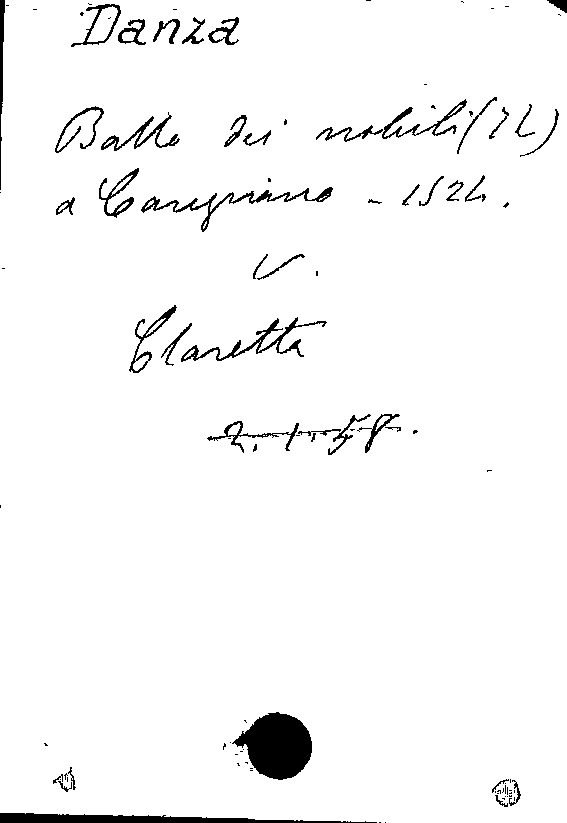 Danza
Ballo dei nobili (Il)
a Carignano - 1524.
V.
Claretta
2. 1. 58.